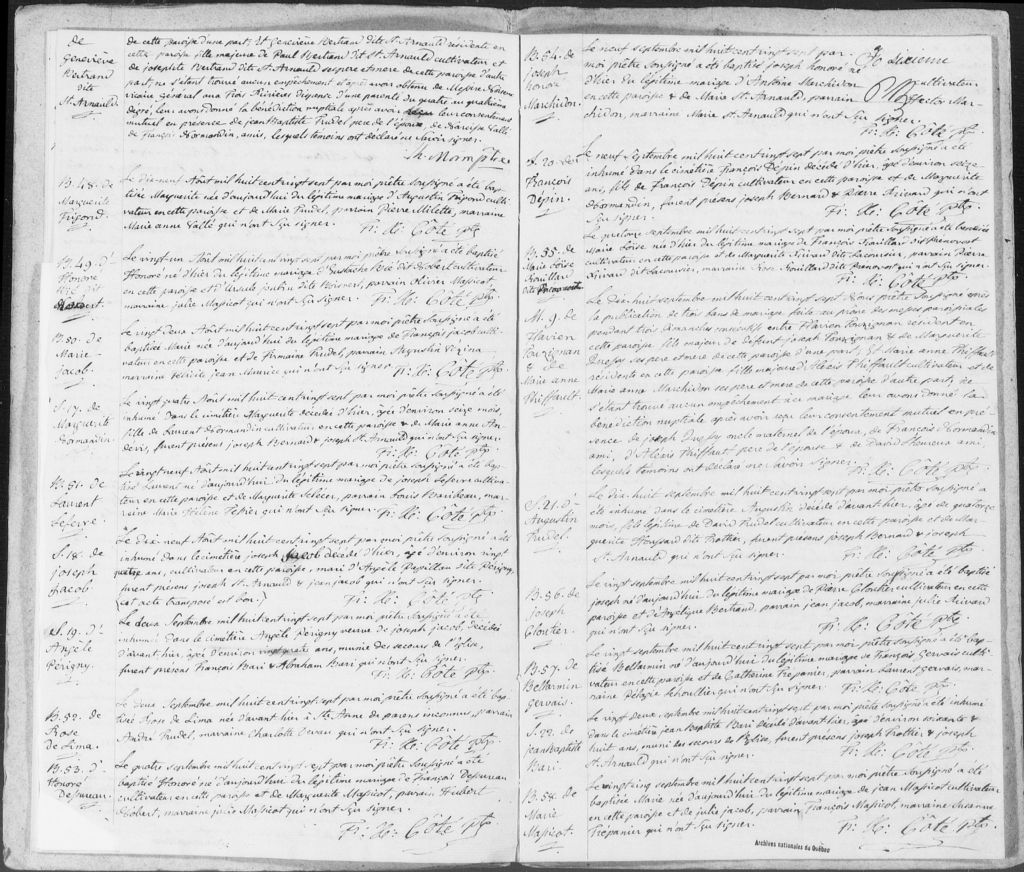 de
Geneviève
Bertrand
dite
St. Arnauld.
de cette paroisse d'une part; Et Geneviève Bertrand dite St. Arnauld résidente en
cette paroisse fille majeure de Paul Bertrand dit St. Arnauld cultivateur et
de Josephte Bertrand dite St. Arnauld ses pere et mere de cette paroisse d'autre
part, ne s'étant trouvé aucun empêchement et après avoir obtenu de
vicaire général aux Trois Rivières dispense d'une parenté du quatre au quatrième
degré, leur avons donné la bénédiction nuptiale après avoir leur consentement
mutuel en présence de jean Baptiste Trudel pere de l'épouse, de Narcisse
de françois Normandin, amis, lesquels témoins ont déclaré ne savoir signer.
B. 48. de
Marguerite
Frigond.
Le dix neuf Août mil huit cent vingt sept par moi prêtre soussigné a été bap-
tisée Marguerite née d'aujourd'hui du légitime mariage d'Augustin Frigond culti-
vateur en cette paroisse et de Marie Trudel, parrain Pierre Milette, marraine
Marie anne qui n'ont sçu signer.
Fr: Xe: Côté ptre
B. 49. d'
Honoré
Le vingt un Août mil huit cent vingt sept par moi prêtre soussigné a été baptisé
Honoré né d'hier du légitime mariage d'Eustache dit Gobert cultivateur
en cette paroisse et d'Ursule, parrain Olivier Massicot,
marraine julie Massicot qui n'ont sçu signer. Fr: Xe: Côté ptre
B. 50. de
Marie
Jacob.
Le vingt deux Août mil huit cent vingt sept par moi prêtre soussigné a été
baptisée Marie née d'aujourd'hui du légitime mariage de François jacob culti-
vateur en cette paroisse et de Trudel, parrain Augustin Vézina
marraine jean Maurice qui n'ont sçu signer. Fr: Xe: Côté ptre
S. 17. de
Marguerite
Normandin.
Le vingt quatre Août mil huit cent vingt sept par moi prêtre soussigné a été
inhumée dans le cimetière Marguerite décédée d'hier, agée d'environ seize mois,
fille de Laurent Normandin cultivateur en cette paroisse & de Marie anne
furent présens joseph Bernard & joseph St. Arnauld qui n'ont sçu signer.
Fr: Xe: Côté ptre
B. 51. de
Laurent
Lefevre.
Le vingt neuf Août mil huit cent vingt sept par moi prêtre soussigné a été bap-
tisé Laurent né d'aujourd'hui du légitime mariage de joseph Lefevre cultiva-
teur en cette paroisse et de Marguerite, parrain Louis Baribeau, mar-
raine Marie Hélene qui n'ont sçu signer. Fr: Xe: Côté ptre
S. 18. de
joseph
Jacob.
Le dix neuf Août mil huit cent vingt sept par moi prêtre soussigné a été
inhumé dans le cimetière joseph Jacob décédé d'hier, agé d'environ vingt
quatre ans, cultivateur en cette paroisse, mari d'Angèle Papillon dite Périgny,
furent présens joseph St. Arnauld & jean jacob qui n'ont sçu signer.
(cet acte transposé est bon.) Fr: Xe: Côté ptre
S. 19. d'
Angèle
Périgny.
Le deux Septembre mil huit cent vingt sept par moi prêtre soussigné a été
inhumée dans le cimetière Angèle Périgny veuve de joseph jacob, décédée
d'avant hier, agée d'environ vingt quatre ans, munie des secours de l'église,
furent présens François Bari & Abraham Bari qui n'ont sçu signer.
Fr: Xe: Côté ptre
B. 52. de
Rose
de Lima.
Le deux Septembre mil huit cent vingt sept par moi prêtre soussigné a été bap-
tisée Rose de Lima née d'avant hier à Ste. Anne de parens inconnus, parrain
André Trudel, marraine Charlotte qui n'ont sçu signer.
Fr: Xe: Côté ptre
B. 53. d'
Honoré
Despureau.
Le quatre Septembre mil huit cent vingt sept par moi prêtre soussigné a été
baptisé Honoré né d'aujourd'hui du légitime mariage de François Despureau
cultivateur en cette paroisse et de Marguerite Massicot, parrain Hubert
Gobert, marraine julie Massicot qui n'ont sçu signer.
Fr: Xe: Côté ptre
B. 54. de
joseph
honoré
Marchildon.
Le neuf septembre mil huit cent vingt sept par
moi prêtre soussigné a été baptisé joseph honoré né
d'hier du légitime mariage d'Antoine Marchildon cultivateur
en cette paroisse & de Marie St. Arnauld, parrain Hector Mar-
childon, marraine Marie St. Arnauld qui n'ont sçu signer.
Fr: Xe: Côté ptre
S. 20. de
François
Dépin.
Le neuf Septembre mil huit cent vingt sept par moi prêtre soussigné a été
inhumé dans le cimetière François Dépin décédé d'hier, agé d'environ seize
ans, fils de François Dépin cultivateur en cette paroisse et de Marguerite
Normandin, furent présens joseph Bernard & Pierre Rivard qui n'ont
sçu signer. Fr: Xe: Côté ptre
B. 55. de
Marie Loïse
Rouillard
dite
Le quatorze Septembre mil huit cent vingt sept par moi prêtre soussigné a été baptisée
Marie Loïse née d'hier du légitime mariage de François Rouillard dit Prenovost
cultivateur en cette paroisse et de Marguerite Rivard dite Lacoursier, parrain Pierre
Rivard dit Lacoursier, marraine Rose Rouillard dite Prenovost qui n'ont sçu signer.
Fr: Xe: Côté ptre
M. 9. de
Flavien
Touzignan
& de
Marie anne
Thiffault.
Le dix sept septembre mil huit cent vingt sept Nous prêtre soussigné après
la publication de trois bans de mariage faite au prône des messes paroissiales
pendant trois dimanches consécutifs entre Flavien Touzignan résident en
cette paroisse fils majeur de défunt joseph Touzignan & de Marguerite
ses pere et mere de cette paroisse d'une part; Et Marie anne Thiffault
résidente en cette paroisse, fille majeure d'Alexis Thiffault cultivateur et de
Marie anne Marchildon ses pere et mere de cette paroisse d'autre part, ne
s'étant trouvé aucun empêchement au mariage leur avons donné la
bénédiction nuptiale après avoir reçu leur consentement mutuel en pré-
sence de joseph oncle maternel de l'époux, de François Normandin
ami, d'Alexis Thiffault pere de l'épouse & de David Heneux ami,
lesquels témoins ont déclaré ne savoir signer. Fr: Xe: Côté ptre
S. 21. d'
Augustin
Trudel.
Le dix huit septembre mil huit cent vingt sept par moi prêtre soussigné a
été inhumé dans le cimetière Augustin décédé d'avant hier, agé de quatorze
mois, fils légitime de David Trudel cultivateur en cette paroisse et de Mar-
guerite dite Trottier, furent présens joseph Bernard & joseph
St. Arnauld qui n'ont sçu signer. Fr: Xe: Côté ptre
B. 56. de
Joseph
Cloutier.
Le vingt septembre mil huit cent vingt sept par moi prêtre soussigné a été baptisé
joseph né d'aujourd'hui du légitime mariage de Pierre Cloutier cultivateur en cette
paroisse et d'Angélique Bertrand, parrain jean jacob, marraine julie Rivard
qui n'ont sçu signer. Fr: Xe: Côté ptre
B. 57. de
Bellarmin
Gervais.
Le vingt septembre mil huit cent vingt sept par moi prêtre soussigné a été bap-
tisé Bellarmin né d'aujourd'hui du légitime mariage de François Gervais culti-
vateur en cette paroisse et de Catherine Trepanier, parrain Laurent Gervais, mar-
raine Pélagie Lehoullier qui n'ont sçu signer. Fr: Xe: Côté ptre
S. 22. de
jean Baptiste
Bari.
Le vingt deux septembre mil huit cent vingt sept par moi prêtre soussigné a été inhumé
dans le cimetière jean Baptiste Bari décédé d'avant hier, agé d'environ soixante &
huit ans, muni des secours de l'église, furent présens joseph Trottier & joseph
St. Arnauld qui n'ont sçu signer. Fr: Xe: Côté ptre
B. 58. de
Marie
Massicot.
Le vingt cinq septembre mil huit cent vingt sept par moi prêtre soussigné a été
baptisée Marie née d'aujourd'hui du légitime mariage de jean Massicot cultivateur
en cette paroisse et de julie jacob, parrain François Massicot, marraine Susanne
Trepanier qui n'ont sçu signer. Fr: Xe: Côté ptre
Archives nationales du Québec